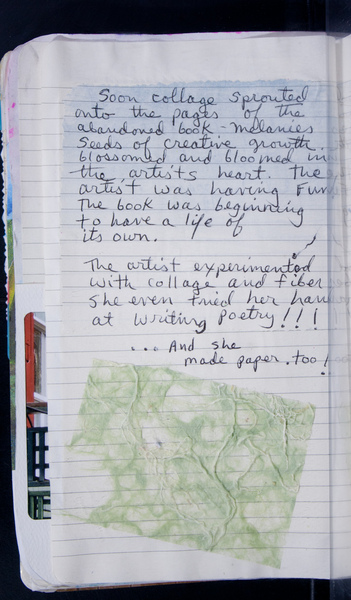 Soon collage sprouted
onto the pages of the
abandoned book - Melanies
Seeds of creative growth.
blossomed and bloomed in
the artists heart. The
artist was having Fun
The book was beginning
to have a life of
its own.
The artist experimented
with collage and fiber
She even tried her hand
at writing poetry!!!
... And she
made paper. too!